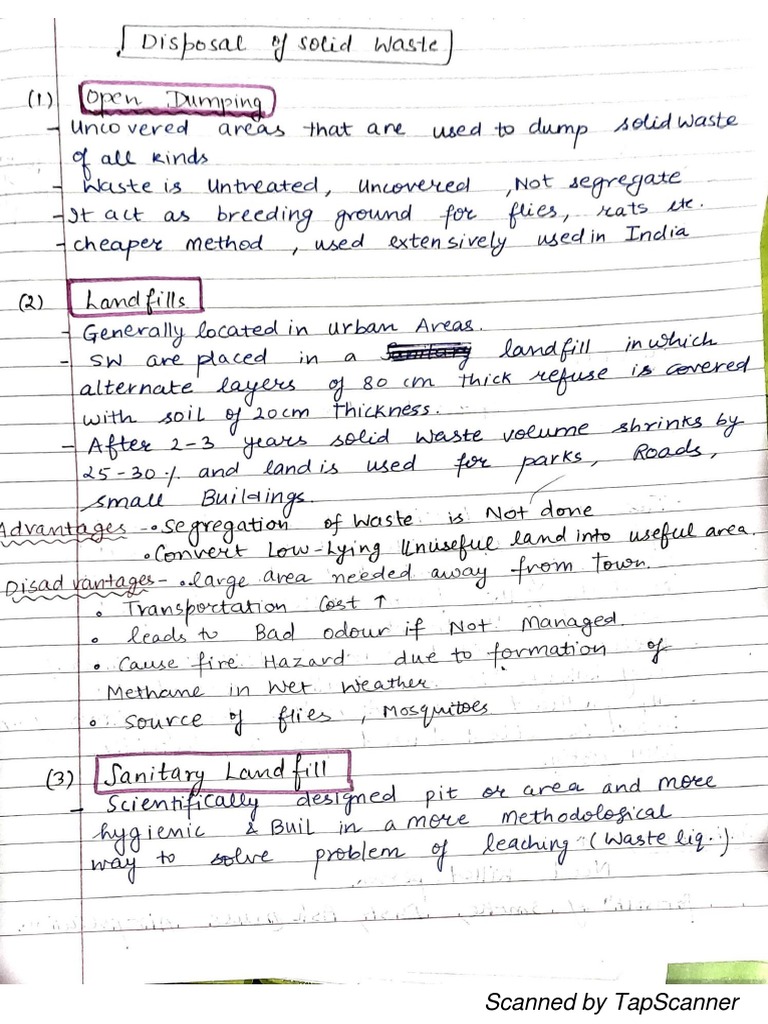 Disposal of solid waste
(1) Open Dumping
- Uncovered areas that are used to dump solid waste
of all kinds
- Waste is Untreated, Uncovered, Not segregate
- It act as breeding ground for flies, rats etc.
- cheaper method, used extensively used in India
(2) Landfills
- Generally located in urban Areas.
- SW are placed in a landfill in which
alternate layers of 80 cm thick refuse is covered
with soil of 20cm thickness.
- After 2-3 years solid waste volume shrinks by
25-30% and land is used for parks, Roads,
small Buildings.
Advantages - • Segregation of Waste is Not done
• Convert Low-Lying Unuseful land into useful area.
Disadvantages - • large area needed away from town.
• Transportation Cost ↑
• leads to Bad odour if Not Managed.
• Cause fire Hazard due to formation of
Methane in Wet Weather.
• Source of flies, Mosquitoes
(3) Sanitary Landfill
- Scientifically designed pit or area and more
hygienic & Buil in a more Methodological
way to solve problem of leaching (Waste liq.)
Scanned by TapScanner